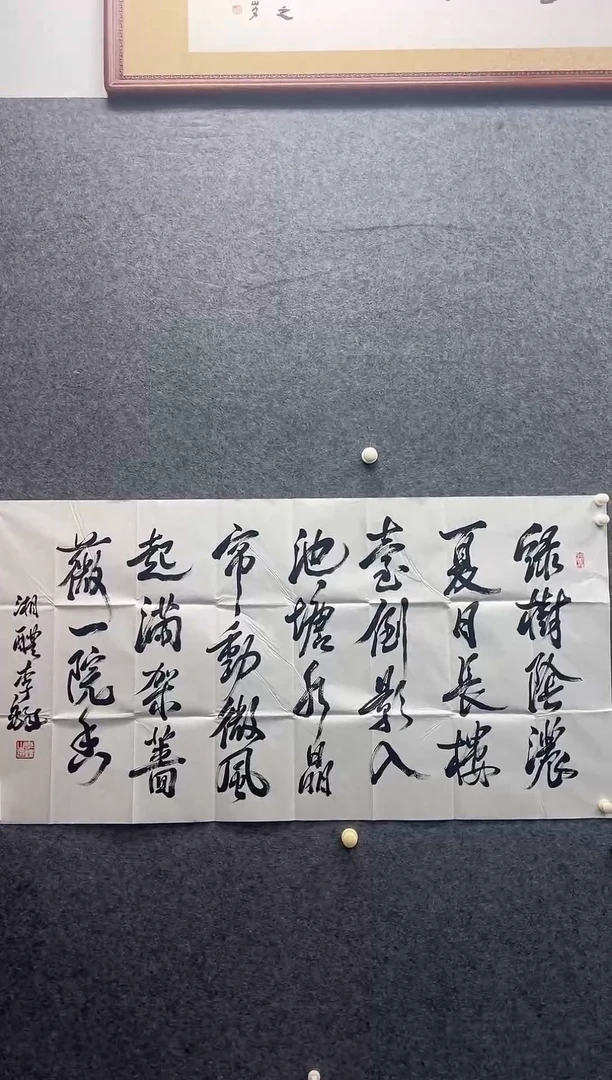 綠樹陰濃
夏日長樓
臺倒影入
池塘水晶
帘動微風
起滿架薔
薇一院香
湘醴李
之